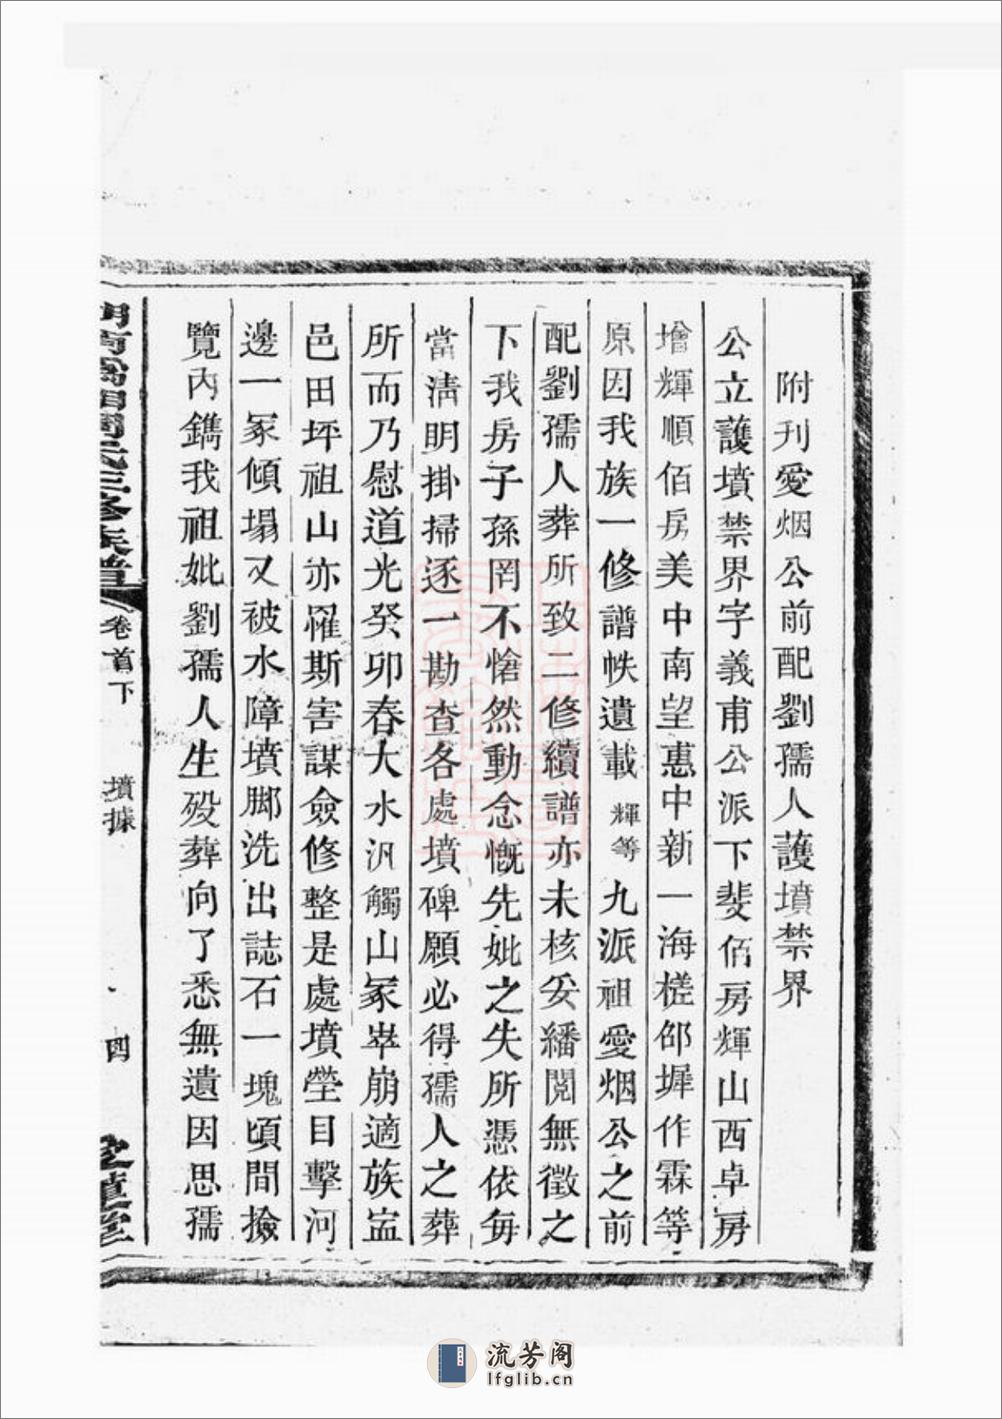 附刊愛烟公前配劉孺人護墳禁界
公立護墳禁界字義甫公派下斐佰房輝山西卓房
增輝順佰房美中南望惠中新一海槎邰墀作霖等
原因我族一修譜帙遺載輝等九派祖愛烟公之前
配劉孺人葬所致二修續譜亦未核妥繙閱無徵之
下我房子孫罔不愴然動念慨先妣之失所憑依每
當清明掛掃逐一勘查各處墳碑願必得孺人之葬
所而乃慰道光癸卯春大水汎觸山冢崒崩適族㝧
邑田坪祖山亦罹斯害謀僉修整是處墳塋目擊河
邊一冢傾塌又被水障墳脚洗出誌石一塊頃間撿
覽內鐫我祖妣劉孺人生殁葬向了悉無遺因思孺
三修族譜
卷首下
墳據
四
堂
流芳阁
lfglib.cn